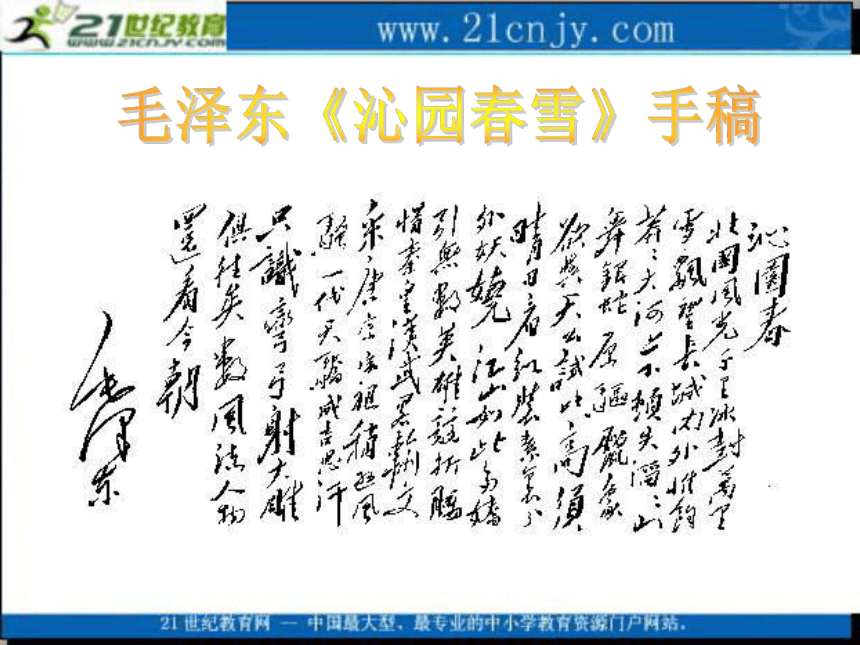 21世纪教育
www.21cnjy.com
www.21cnjy.com
毛泽东《沁园春雪》手稿
沁園春
北國風光千里冰封萬里
雪飄望長城内外惟餘
莽〻大河上下頓失滔〻山
舞銀蛇原驅臘象
欲與天公試比高須
晴日看紅裝素裹分
外妖嬈江山如此多嬌
引無數英雄競折腰
惜秦皇漢武略輸文
采唐宗宋祖稍遜風
騷一代天驕成吉思汗
只識彎弓射大雕
俱往矣數風流人物
還看今朝
毛澤東
21世纪教育网 -- 中国最大型、最专业的中小学教育资源门户网站。